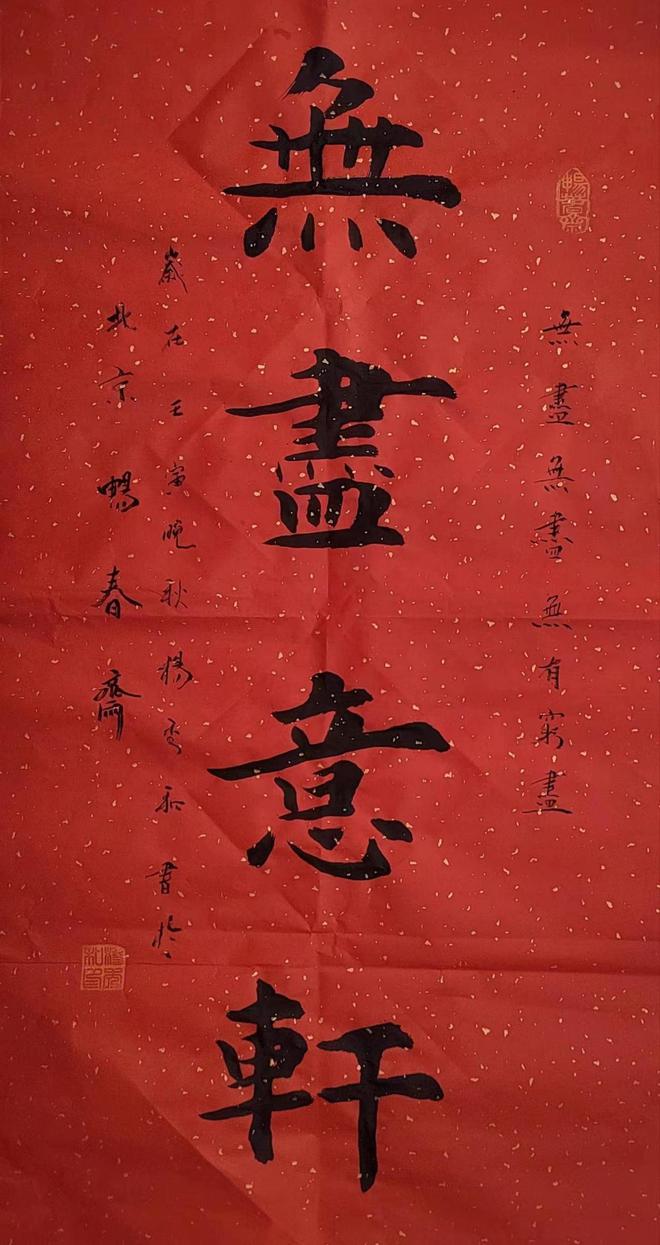 暢春齋
無盡無盡無有窮盡
無盡意軒
歲在壬寅晚秋楊和書於
北京暢春齋